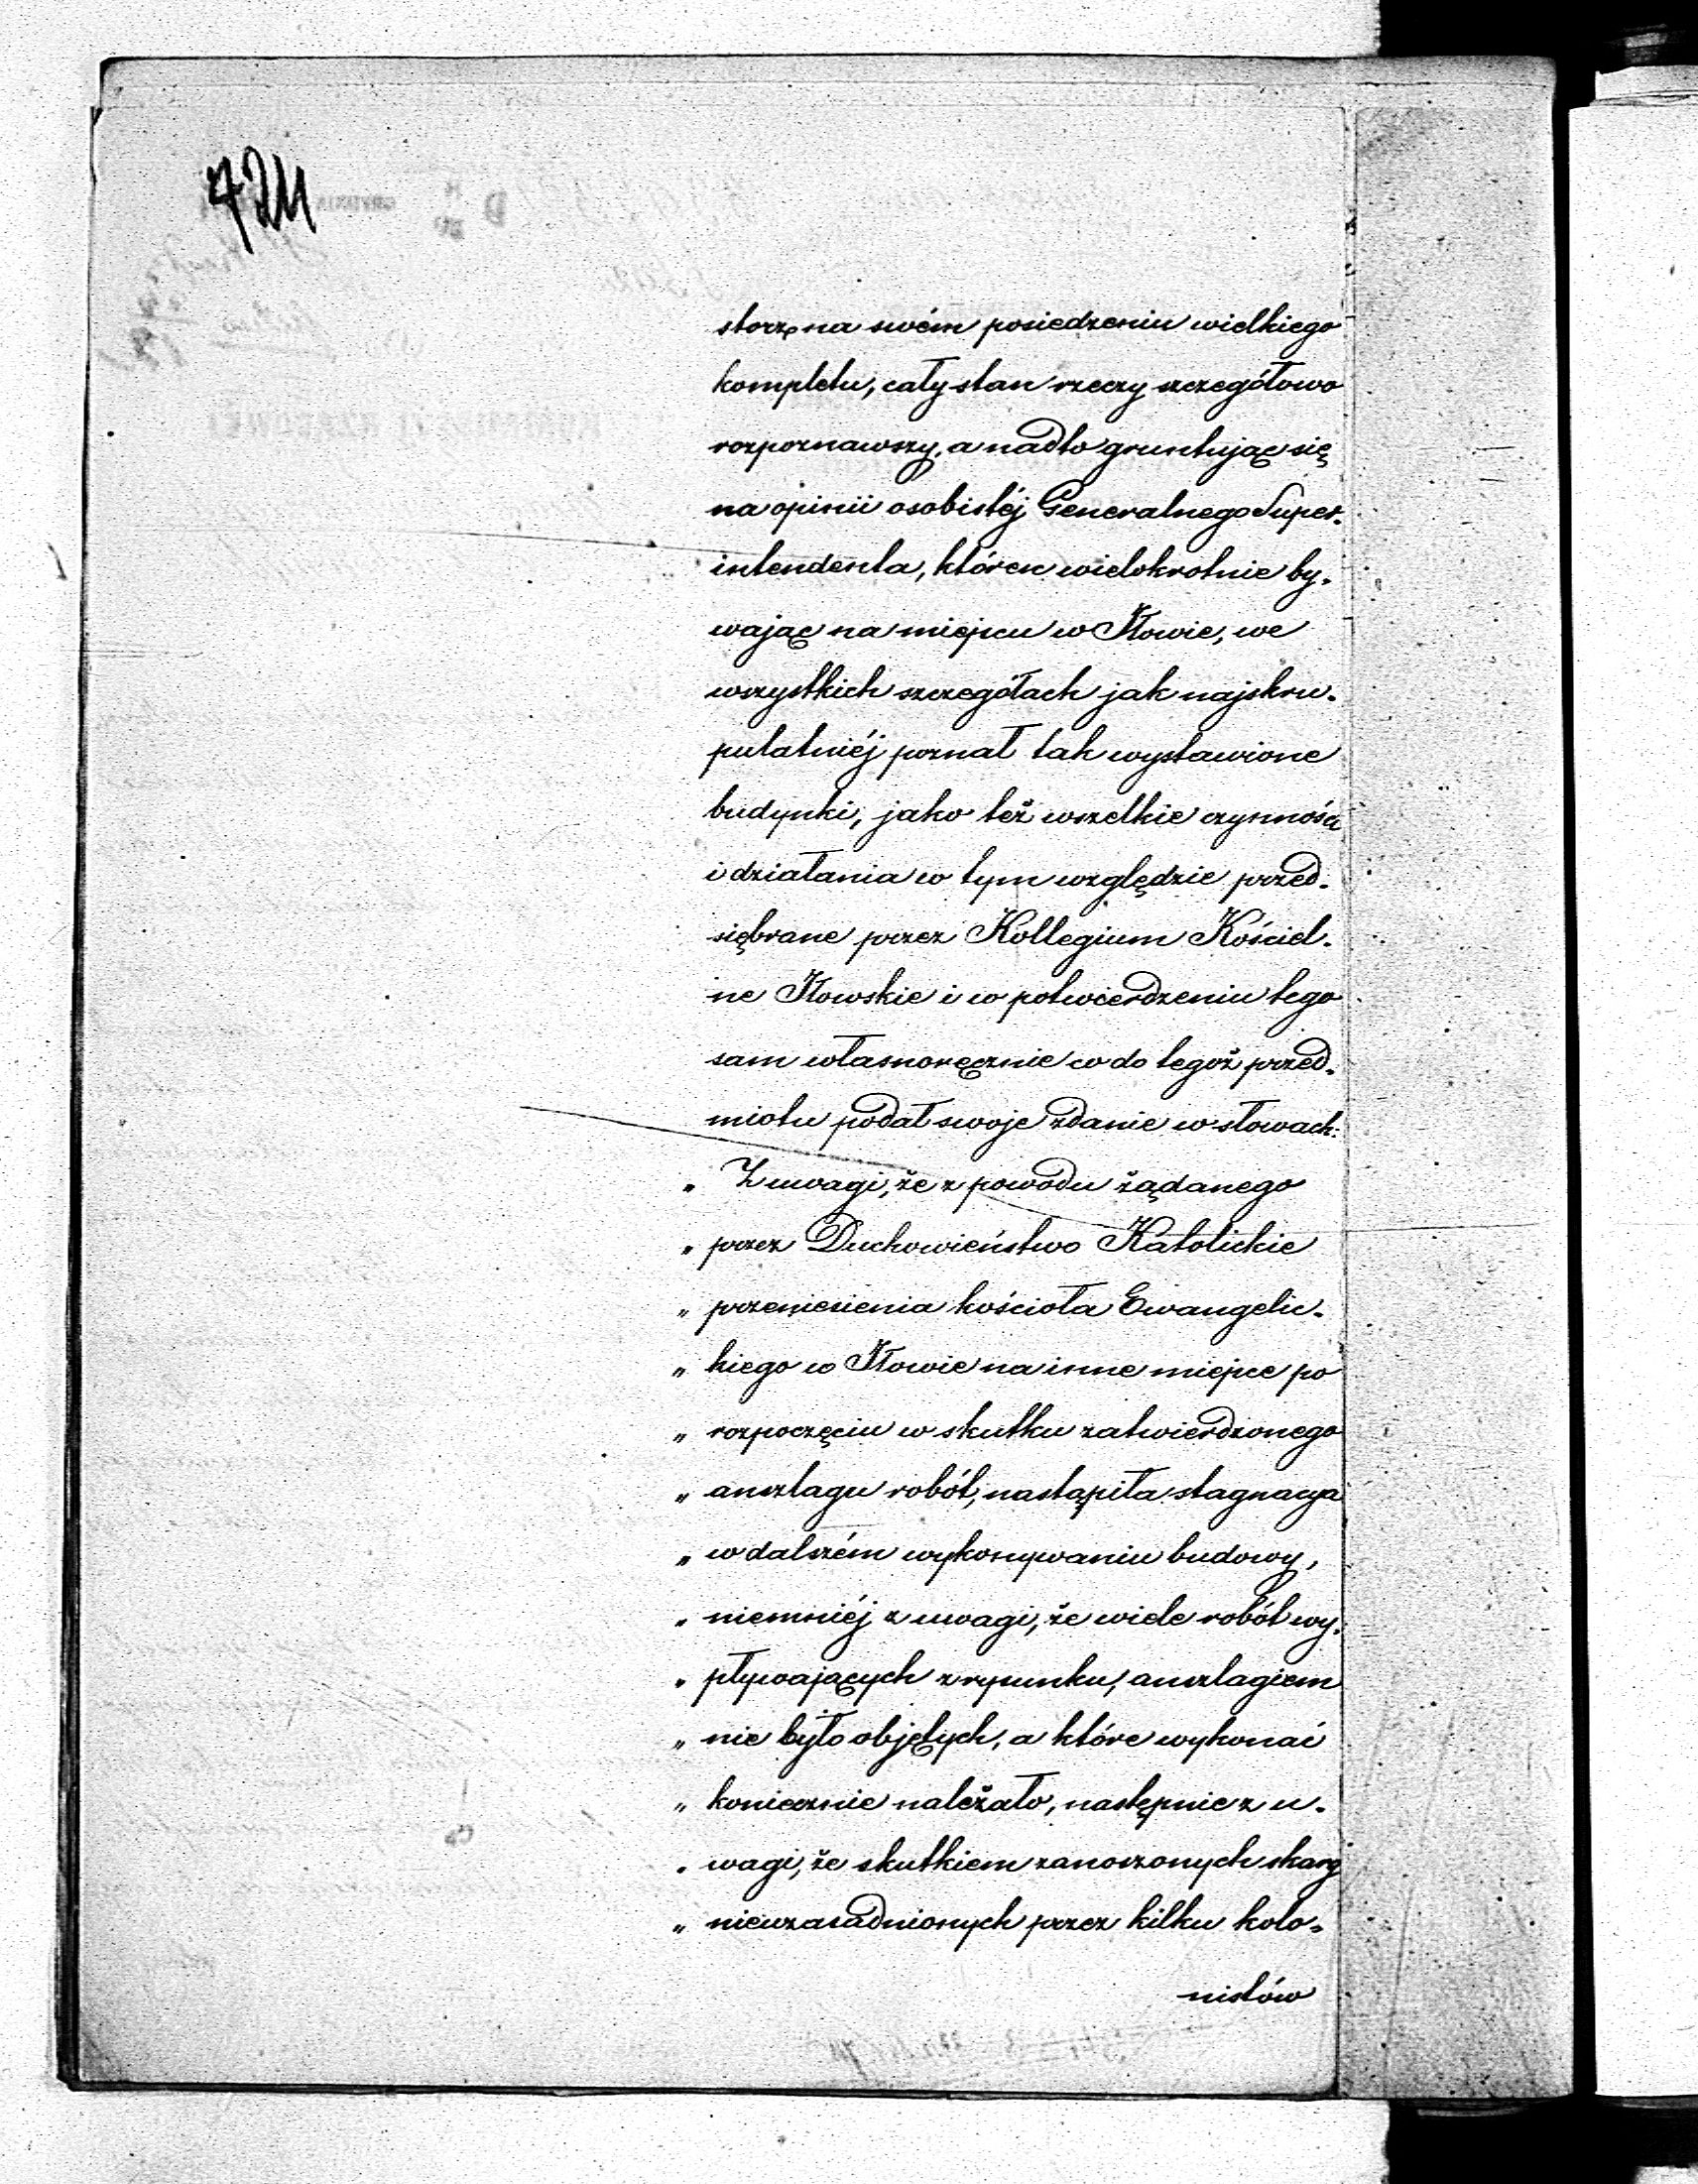 724
storz na swém posiedzeniu wielkiego
kompletu, cały stan rzeczy szczegółowo
rozpoznawszy, a nadto gruntując się
na opinii osobistéj Generalnego Super-
intendenta, któren wielokrotnie by-
wając na miejscu w Iłowie, we
wszystkich szczegółach jak najskru-
pulatniéj poznał tak wystawione
budynki, jako też wszelkie czynności
i działania w tym względzie przed-
siębrane przez Kollegium Kościel-
ne Iłowskie i w potwierdzeniu tego
sam własnoręcznie co do tegoż przed-
miotu podał swoje zdanie w słowach:
„ Z uwagi, że z powodu żądanego
„ przez Duchowieństwo Katolickie
„ przeniesienia kościoła Ewangelic-
„ kiego w Iłowie na inne miejsce po
„ rozpoczęciu w skutku zatwierdzonego
„ anszlagu robót, nastąpiła stagnacya
„ w dalszém wykonywaniu budowy,
„ niemniéj z uwagi, że wiele robót wy-
„ pływających z rysunku, anszlagiem
„ nie było objętych, a które wykonać
„ koniecznie należało, następnie z u-
„ wagi, że skutkiem zanoszonych skarg
„ nieuzasadnionych przez kilku kolo-
nistów